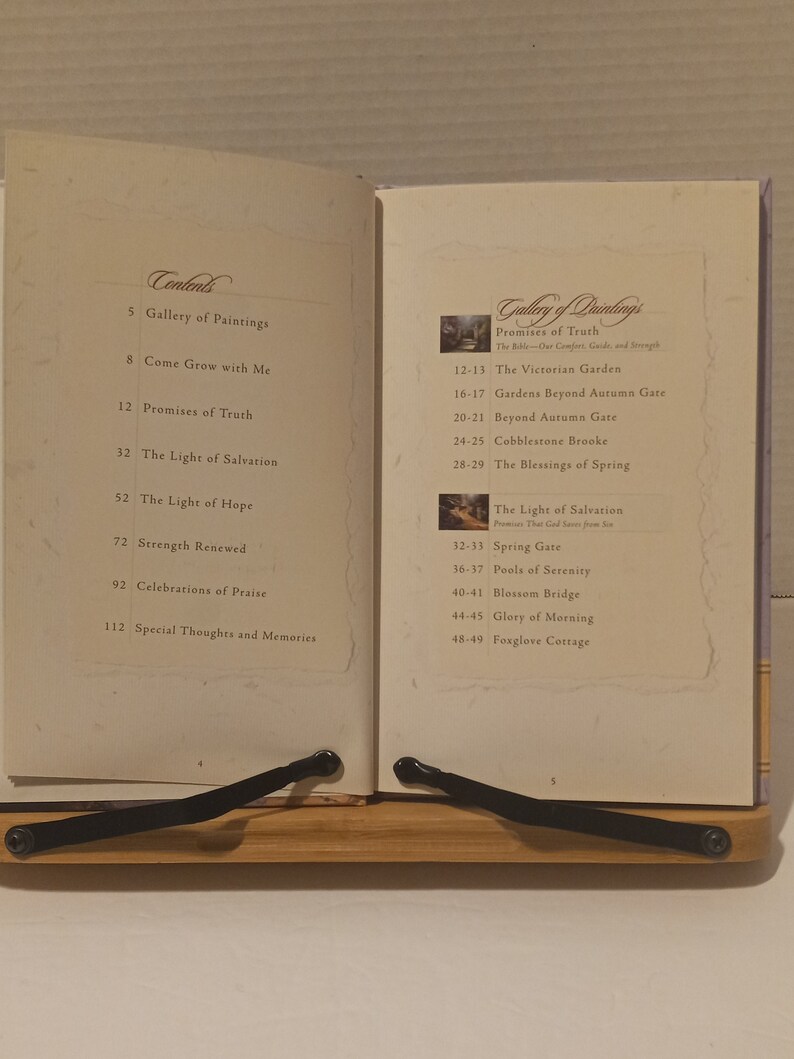 Contents
5 Gallery of Paintings
8 Come Grow with Me
12 Promises of Truth
32 The Light of Salvation
52 The Light of Hope
72 Strength Renewed
92 Celebrations of Praise
112 Special Thoughts and Memories
4
Gallery of Paintings
Promises of Truth
The Bible—Our Comfort, Guide, and Strength
12-13 The Victorian Garden
16-17 Gardens Beyond Autumn Gate
20-21 Beyond Autumn Gate
24-25 Cobblestone Brooke
28-29 The Blessings of Spring
The Light of Salvation
Promises That God Saves from Sin
32-33 Spring Gate
36-37 Pools of Serenity
40-41 Blossom Bridge
44-45 Glory of Morning
48-49 Foxglove Cottage
5